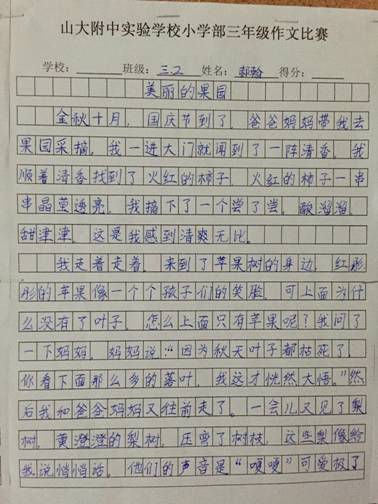 山大附中实验学校小学部三年级作文比赛
学校：班级：三.2 姓名：郝翰 得分：
美丽的果园
金秋十月，国庆节到了，爸爸妈妈带我去
果园采摘，我一进大门就闻到了一阵清香。我
顺着清香找到了火红的柿子，火红的柿子一串
串晶莹透亮。我摘下了一个尝了尝。酸溜溜，
甜津津，这是我感到清爽无比。
我走着走着，来到了苹果树的身边，红彤
彤的苹果像一个个孩子们的笑脸，可上面为什
么没有了叶子，怎么上面只有苹果呢？我问了
一下妈妈，妈妈说：“因为秋天叶子都枯死了，
你看下面那么多的落叶，我这才恍然大悟。”然
后我和爸爸妈妈又往前走了。一会儿又见了梨
树，黄澄澄的梨树，压弯了树枝，这些梨像给
我说悄悄话，他们的声音是“嘎嘎”可爱极了